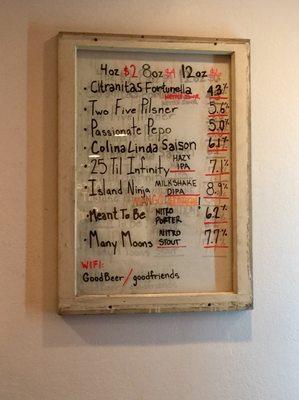 4oz $2 8oz $4 12oz $6
· Citranitas Fortunella 4.3%
Kettle Sour
· Two Five Pilsner 5.6%
· Passionate Pepo 5.0%
· Colina Linda Saison 6.1%
· 25 Til Infinity HAZY IPA 7.1%
· Island Ninja MILKSHAKE DIPA 8.9%
MANGO
· Meant To Be NITRO PORTER 6.2%
· Many Moons NITRO STOUT 7.7%
WIFI:
GoodBeer/goodfriends